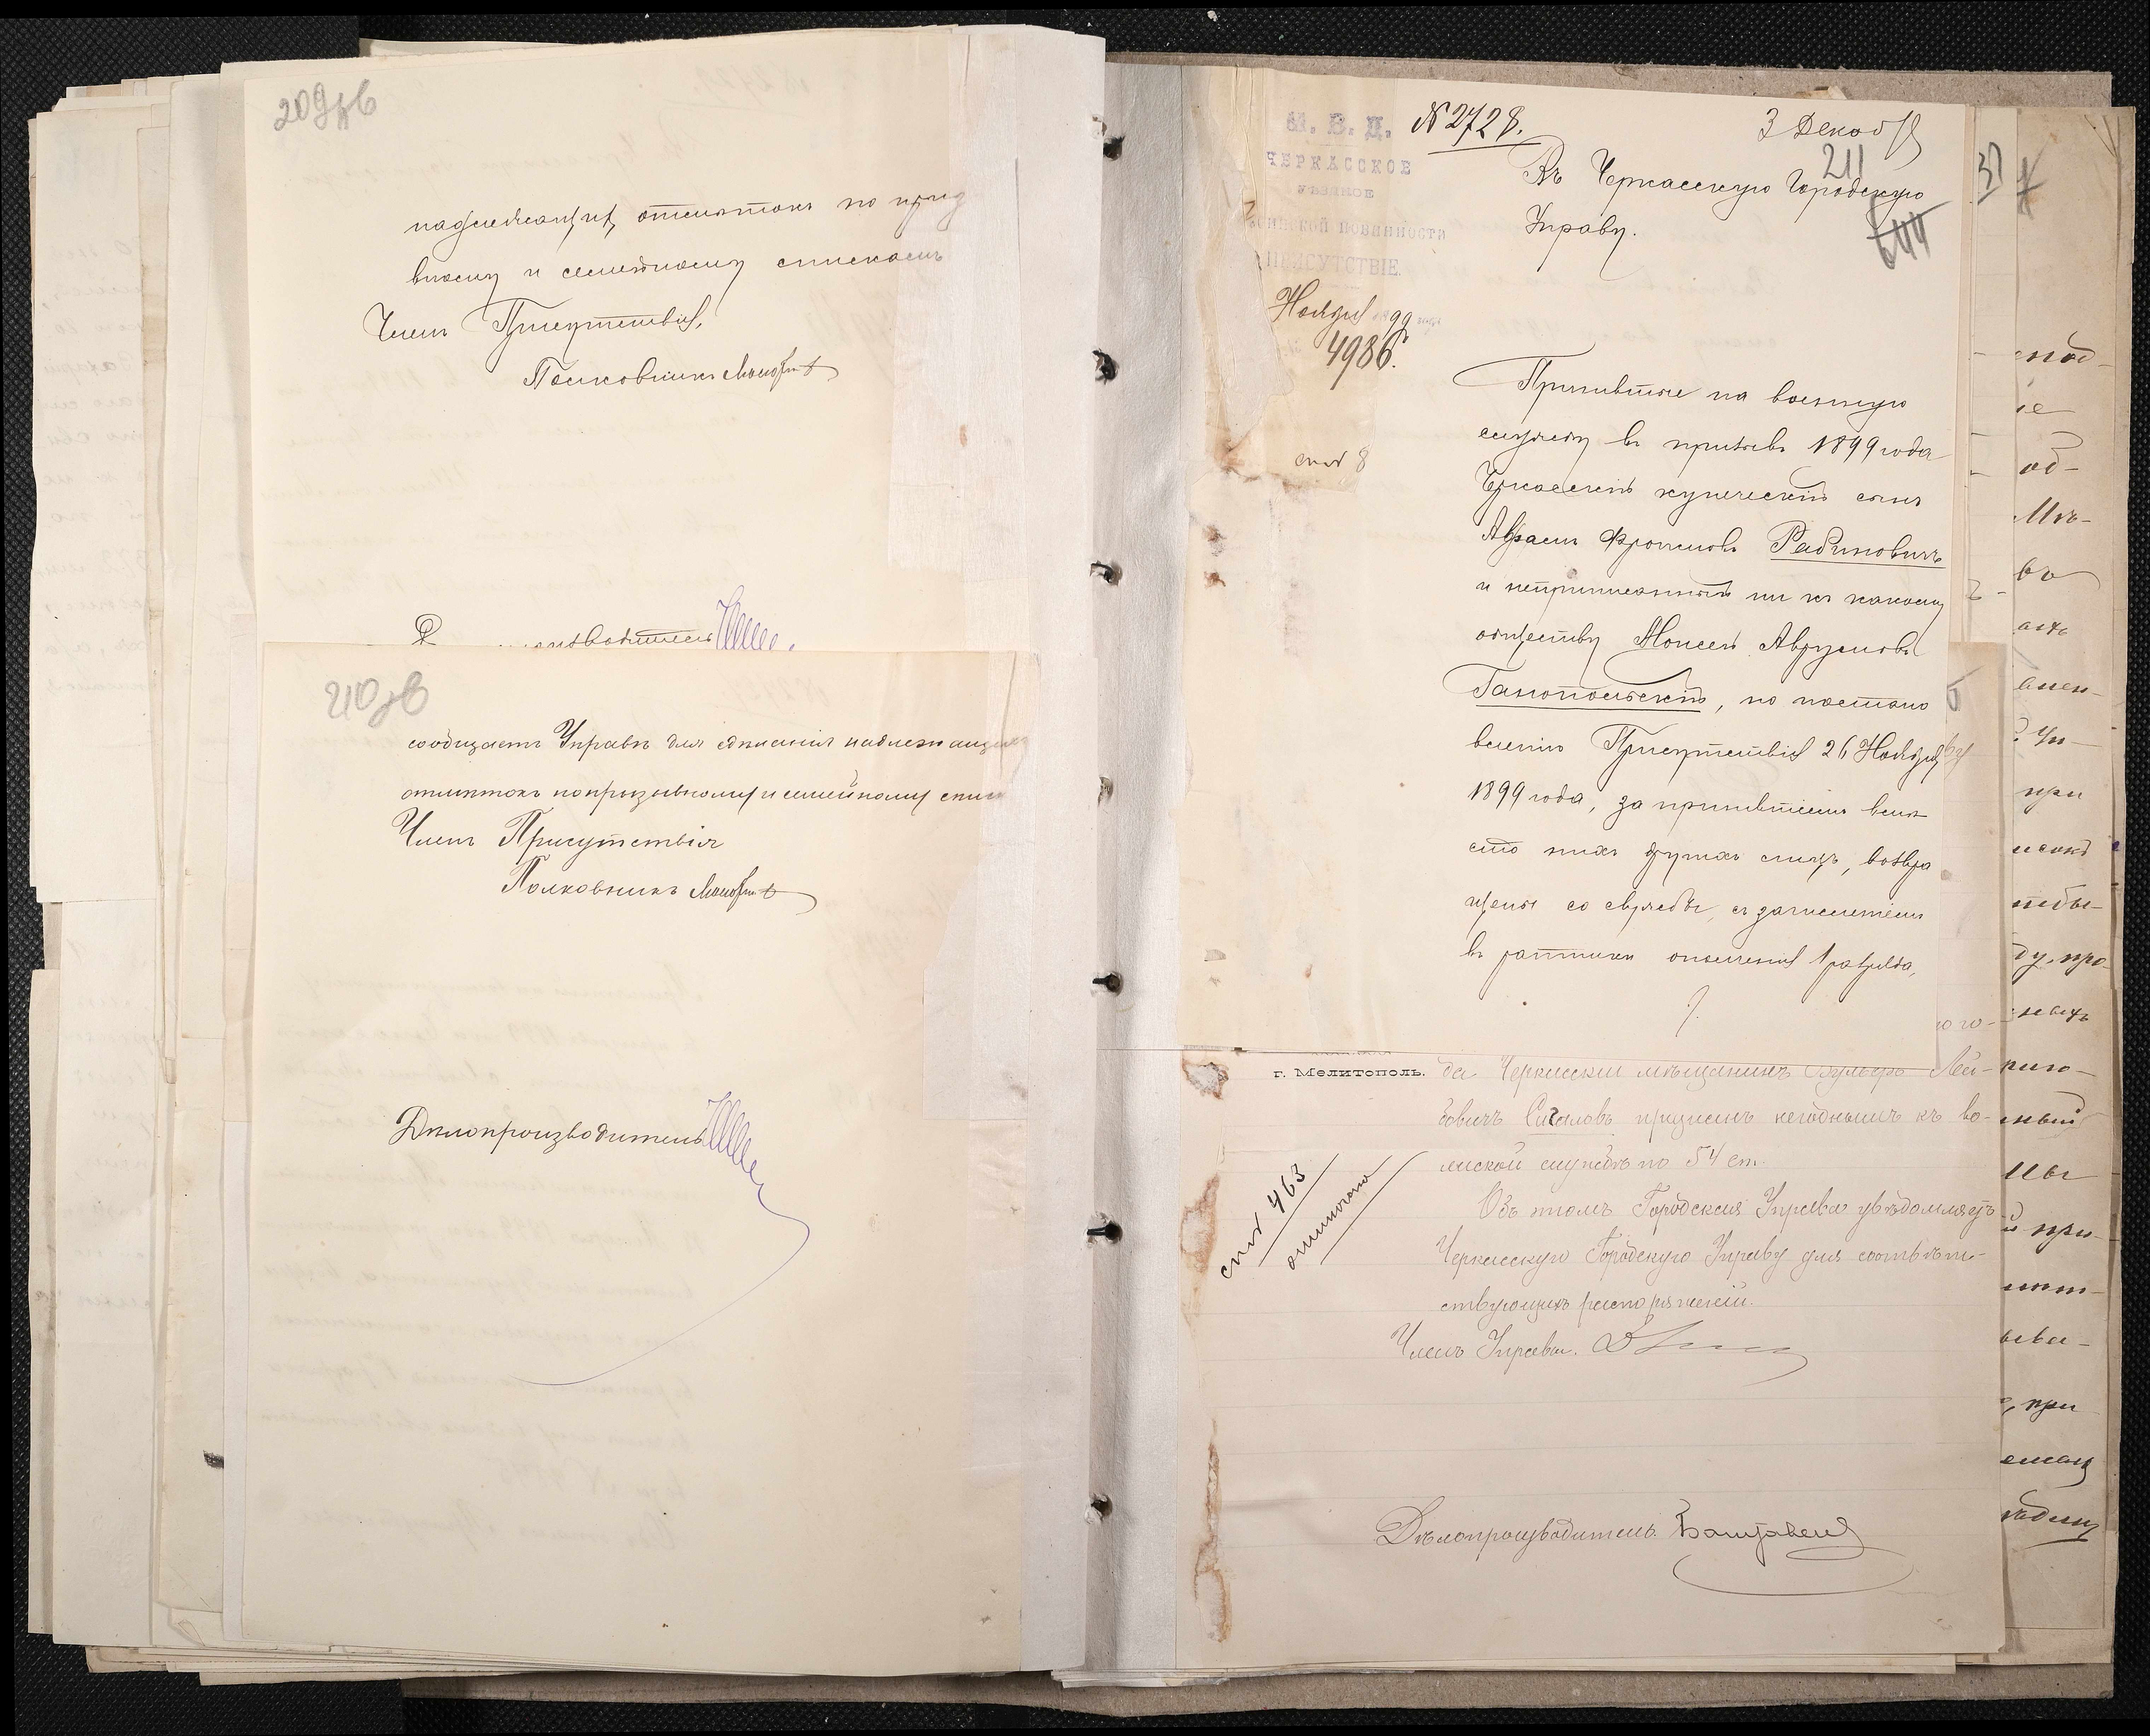 209об
надлежащихъ отмѣтокъ по призы
вному и семейному спискамъ
Членъ Присутствія,
Полковникъ
210об
сообщаетъ Управѣ для сдѣланія надлежащихъ
отмѣтокъ по призывному и семейному спис
Членъ Присутствія
Полковникъ
Дѣлопроизводитель
М. В. Д.
ЧЕРКАССКОЕ
УѢЗДНОЕ
ВОИНСКОЙ ПОВИННОСТИ
ПРИСУТСТВІЕ.
Ноября 99
4986.
№ 2728.
3 Декаб
211
Въ Черкасскую Городскую
Управу.
644
ст 8
Принятые на военную
службу въ призывъ 1899 года
Черкасскій купеческій сынъ
Абрамъ Фроимовъ Рабиновичъ
и неприписанный ни къ какому
обществу Мошень Аврумовъ
Ганопольскій, по постано
вленію Присутствія 26 Ноября
1899 года, за принятіемъ вмѣ
сто нихъ другихъ лицъ, возвра
щены со службы, съ зачисленіемъ
въ ратники ополченія 1 разряда,
г. Мелитополь.
да Черкасскій мѣщанинъ Вульфъ Лей-
бовичъ Сигаловъ признанъ негоднымъ къ во-
инской службѣ по 54 ст.
Объ этомъ Городская Управа увѣдомляетъ
Черкасскую Городскую Управу для соотвѣт-
ствующихъ распоряженій.
Членъ Управы.
ст 463
отмѣчено
Дѣлопроизводитель